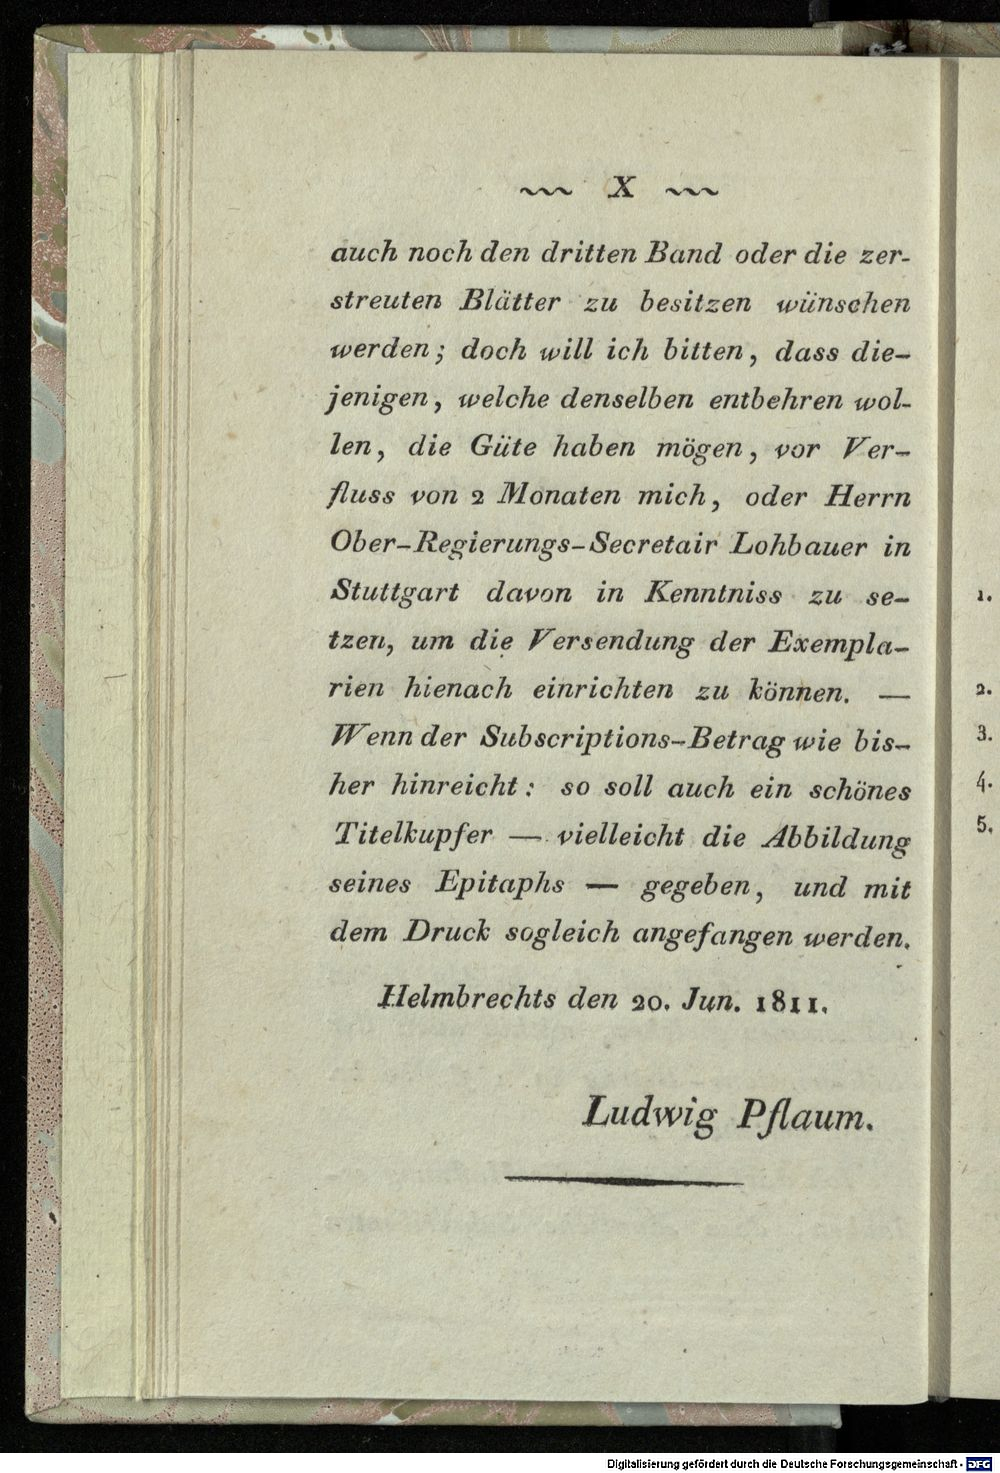 ~~~ X ~~~
auch noch den dritten Band oder die zer-
streuten Blätter zu besitzen wünschen
werden; doch will ich bitten, dass die-
jenigen, welche denselben entbehren wol-
len, die Güte haben mögen, vor Ver-
fluss von 2 Monaten mich, oder Herrn
Ober-Regierungs-Secretair Lohbauer in
Stuttgart davon in Kenntniss zu se-
tzen, um die Versendung der Exempla-
rien hienach einrichten zu können. —
Wenn der Subscriptions-Betrag wie bis-
her hinreicht: so soll auch ein schönes
Titelkupfer — vielleicht die Abbildung
seines Epitaphs — gegeben, und mit
dem Druck sogleich angefangen werden.
Helmbrechts den 20. Jun. 1811.
Ludwig Pflaum.
1.
2.
3.
4.
5.
Digitalisierung gefördert durch die Deutsche Forschungsgemeinschaft - DFG